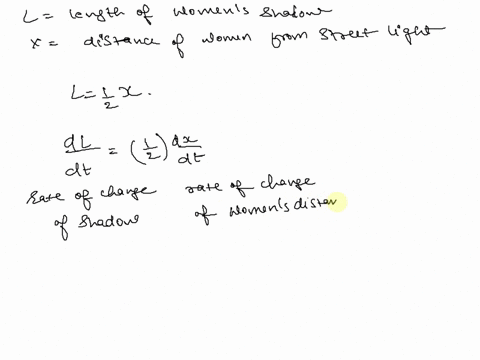 L = length of women's shadow
x = distance of women from street light
L = 1/2 x.
dL/dt = (1/2) dx/dt
rate of change rate of change
of shadow of women's distan